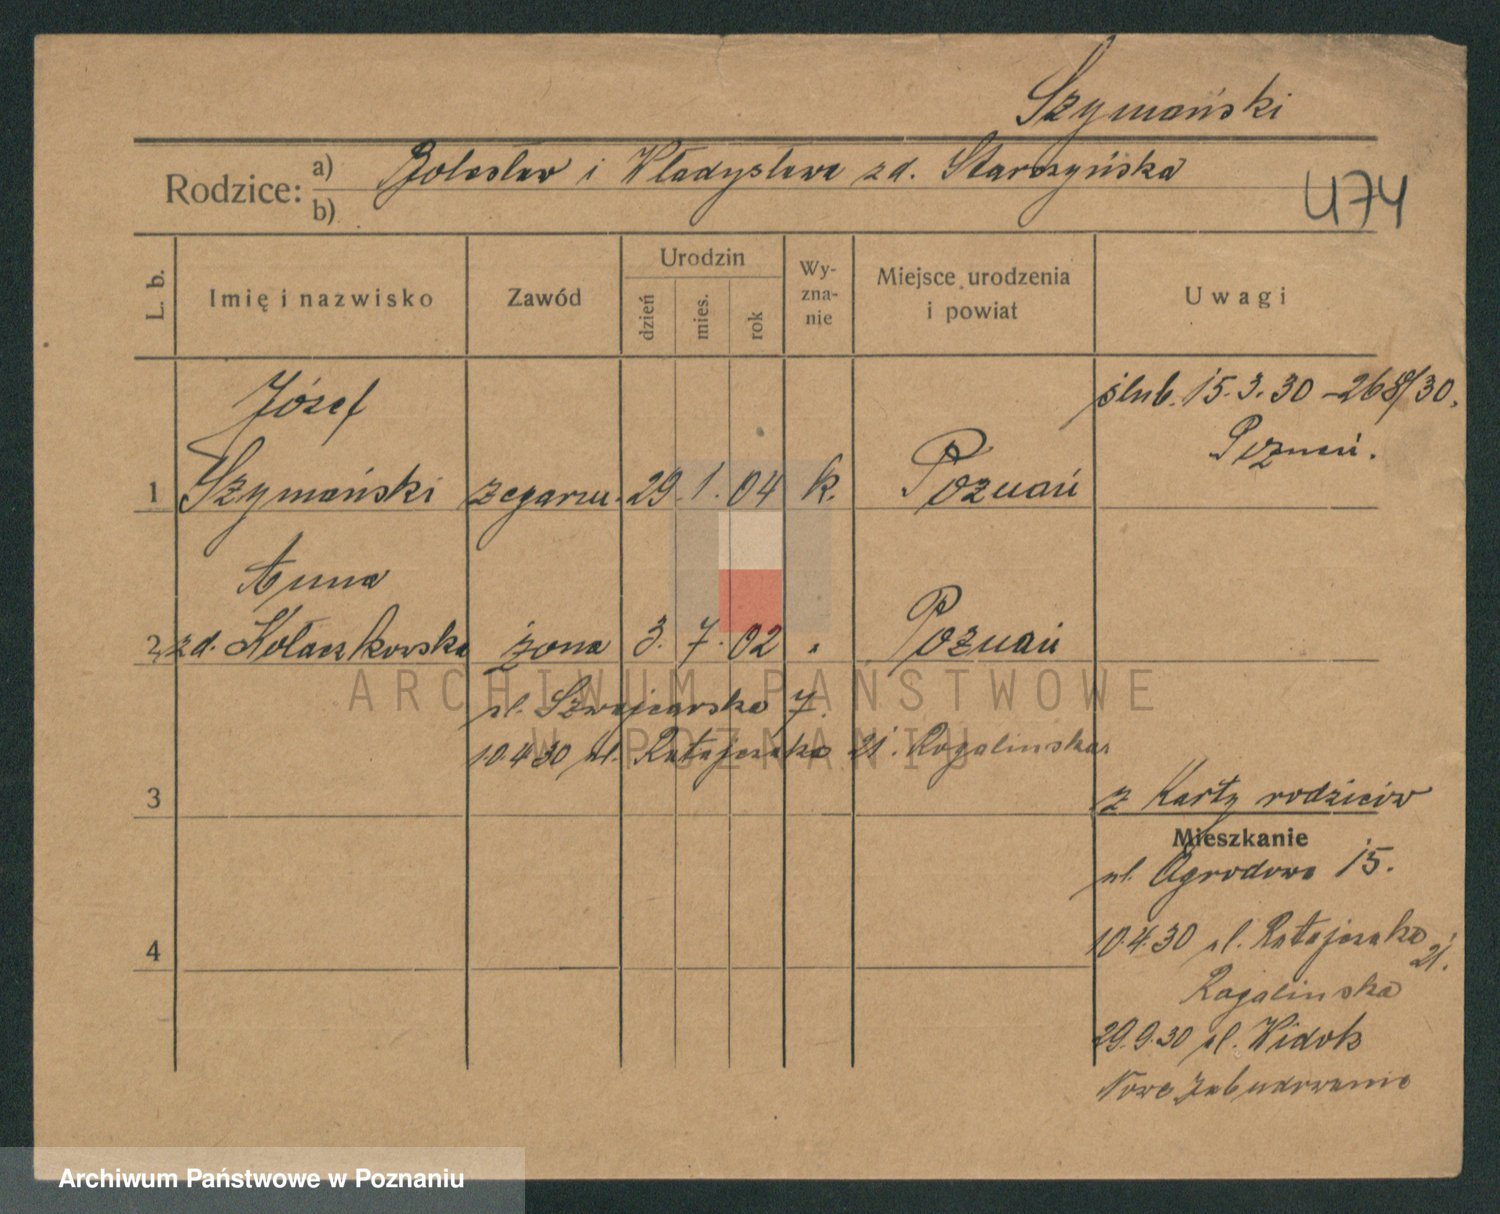 Szymański
Rodzice: a) Bolesław i Władysława zd. Starczyńska
b)
U74
L. b.
Imię i nazwisko
Zawód
Urodzin
dzień
mies.
rok
Wy-
zna-
nie
Miejsce urodzenia
i powiat
Uwagi
Józef
ślub. 15.3.30 – 268/30.
Poznań.
1 Szymański zegarm. 29. 1. 04 k. Poznań
Anna
2 zd. Kołaczkowska żona 3. 7. 02 " Poznań
ul. Szwajcarska 7.
10.4.30 ul. Ratajczaka 21. Rogalinska
3
z Karty rodziców
Mieszkanie
ul. Ogrodowa 15.
10.4.30 ul. Ratajczaka 21.
4
Rogalinska
29.9.30 ul. Widok
Nowe zabudowanie
ARCHIWUM PAŃSTWOWE
W POZNANIU
Archiwum Państwowe w Poznaniu